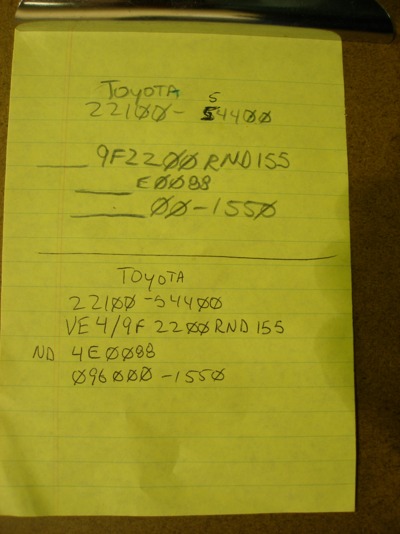 TOYOTA
5
22100- 54400
___ 9F2200RND155
___ E0088
___ 00-1550
TOYOTA
22100-54400
VE4/9F 2200RND155
ND 4E0088
096000-1550